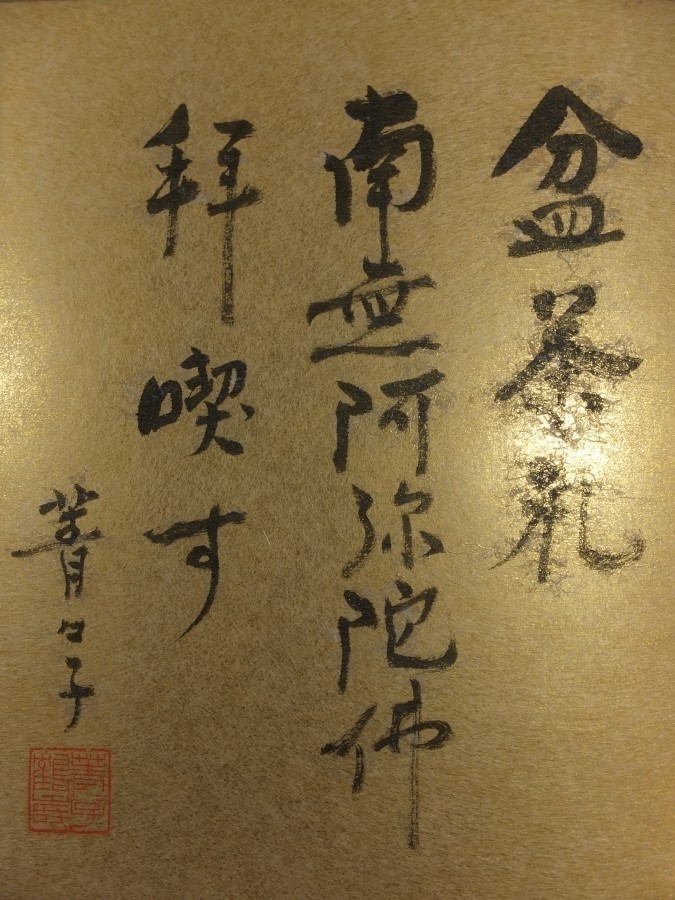 盆茶礼
南無阿弥陀佛
拜喫す
菁々子